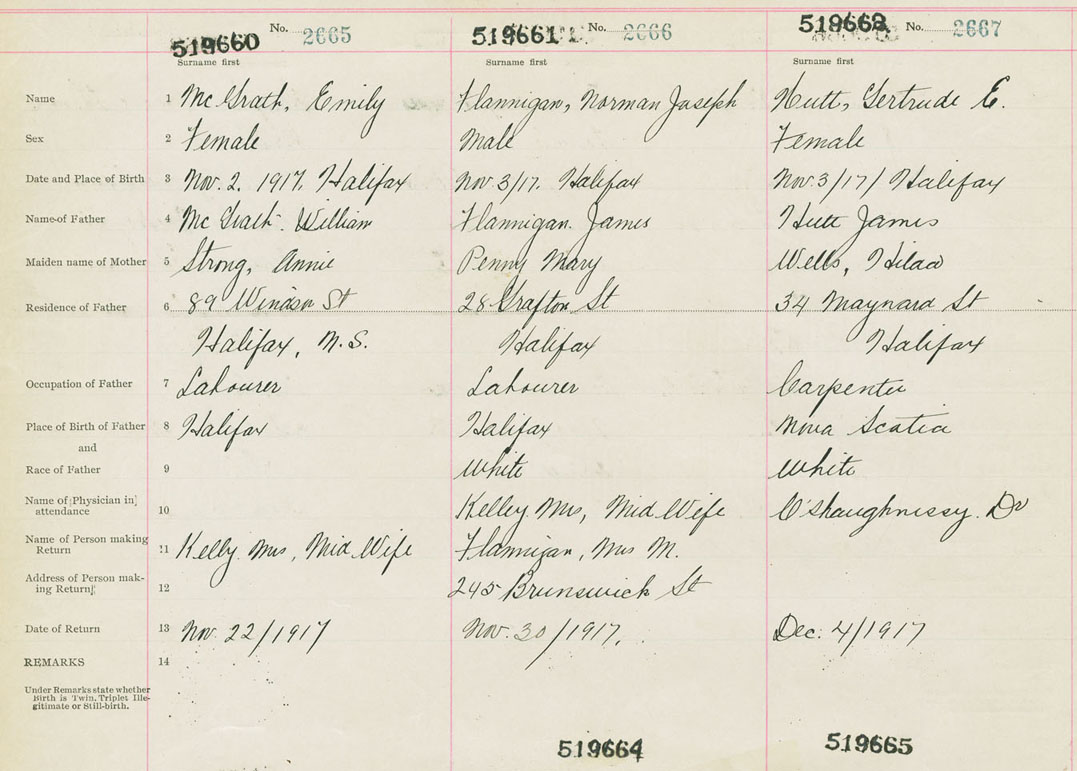 519660 No. 2665 519661 No. 2666 519662 No. 2667
Surname first Surname first Surname first
Name 1 McGrath, Emily Flannigan, Norman Joseph Hutt, Gertrude E.
Sex 2 Female Male Female
Date and Place of Birth 3 Nov. 2. 1917. Halifax Nov. 3/17. Halifax Nov. 3/17/ Halifax
Name of Father 4 McGrath. William Flannigan. James Hutt James
Maiden name of Mother 5 Strong, Annie Penny Mary Wells, Hilda
Residence of Father 6 89 Windsor St 28 Grafton St 34 Maynard St
Halifax, N.S. Halifax Halifax
Occupation of Father 7 Labourer Labourer Carpenter
Place of Birth of Father 8 Halifax Halifax Nova Scotia
and
Race of Father 9 White White
Name of Physician in
attendance 10 Kelley Mrs, Mid Wife O'Shaughnissy. Dr
Name of Person making
Return 11 Kelly Mrs, Mid Wife Flannigan, Mrs M.
Address of Person mak-
ing Return 12 245 Brunswick St
Date of Return 13 Nov. 22/1917 Nov. 30/1917. Dec. 4/1917
REMARKS 14
Under Remarks state whether
Birth is Twin, Triplet Ille-
gitimate or Still-birth.
519664 519665